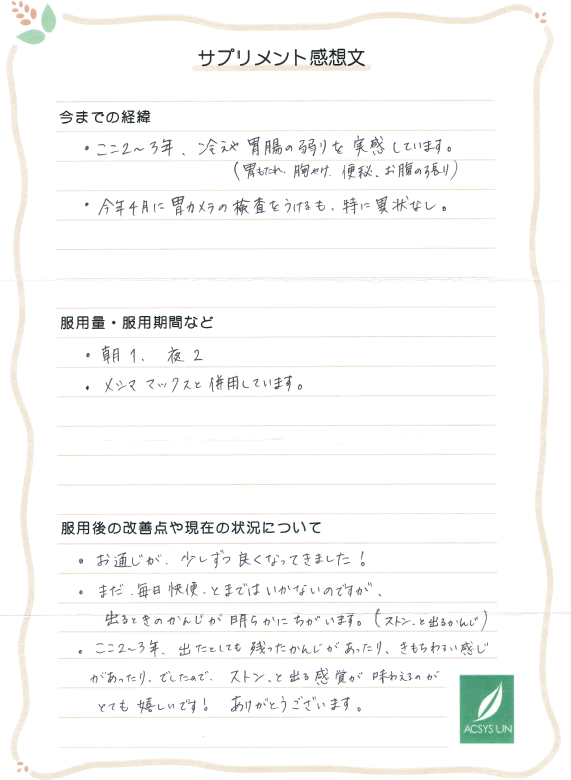 サプリメント感想文
今までの経緯
・ここ2〜3年、冷えや胃腸の弱りを実感しています。
（胃もたれ、胸やけ、便秘、お腹の張り）
・今年4月に胃カメラの検査をうけるも、特に異状なし。
服用量・服用期間など
・朝1、夜2
・メシマ マックスと併用しています。
服用後の改善点や現在の状況について
・お通じが、少しずつ良くなってきました！
・まだ、毎日快便、とまではいかないのですが、
出るときのかんじが明らかにちがいます。（ストン、と出るかんじ）
・ここ2〜3年、出たとしても残ったかんじがあったり、きもちわるい感じ
があったり、でしたので、ストン、と出る感覚が味わえるのが
とても嬉しいです！ ありがとうございます。
ACSYS UN